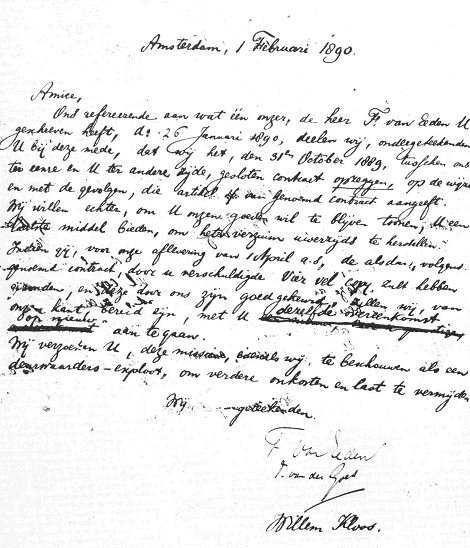 Amsterdam, 1 Februari 1890.
Amice,
Ons refereerende aan wat één onzer, de heer F. van Eeden U
geschreven heeft, d.d. 26 Januari 1890, deelen wij, ondergeteekenden
U bij deze mede, dat wij het, den 31sten October 1889, tusschen ons
ter eenre en U ter andere zijde, gesloten contract opzeggen, op de wijze
en met de gevolgen, die artikel van genoemd contract aangeeft.
Wij willen echter, om U onzen goeden wil te blijven toonen, U een
laatste middel bieden, om het verzuim uwerzijds te herstellen.
Indien gij, voor onze aflevering van 1 April a.s, de alsdan, volgens
genoemd contract, door u verschuldigde vier vel zult hebben
en deze door ons zijn goedgekeurd, zullen wij, van
onzen kant bereid zijn, met U dezelfde overeenkomst
op nieuw aan te gaan.
Wij verzoeken U, deze missive, te beschouwen als een
deurwaarders-exploot, om verdere onkosten en last te vermijden
Wij geteekenden.
F. van Eeden
F. van der Goes
Willem Kloos.